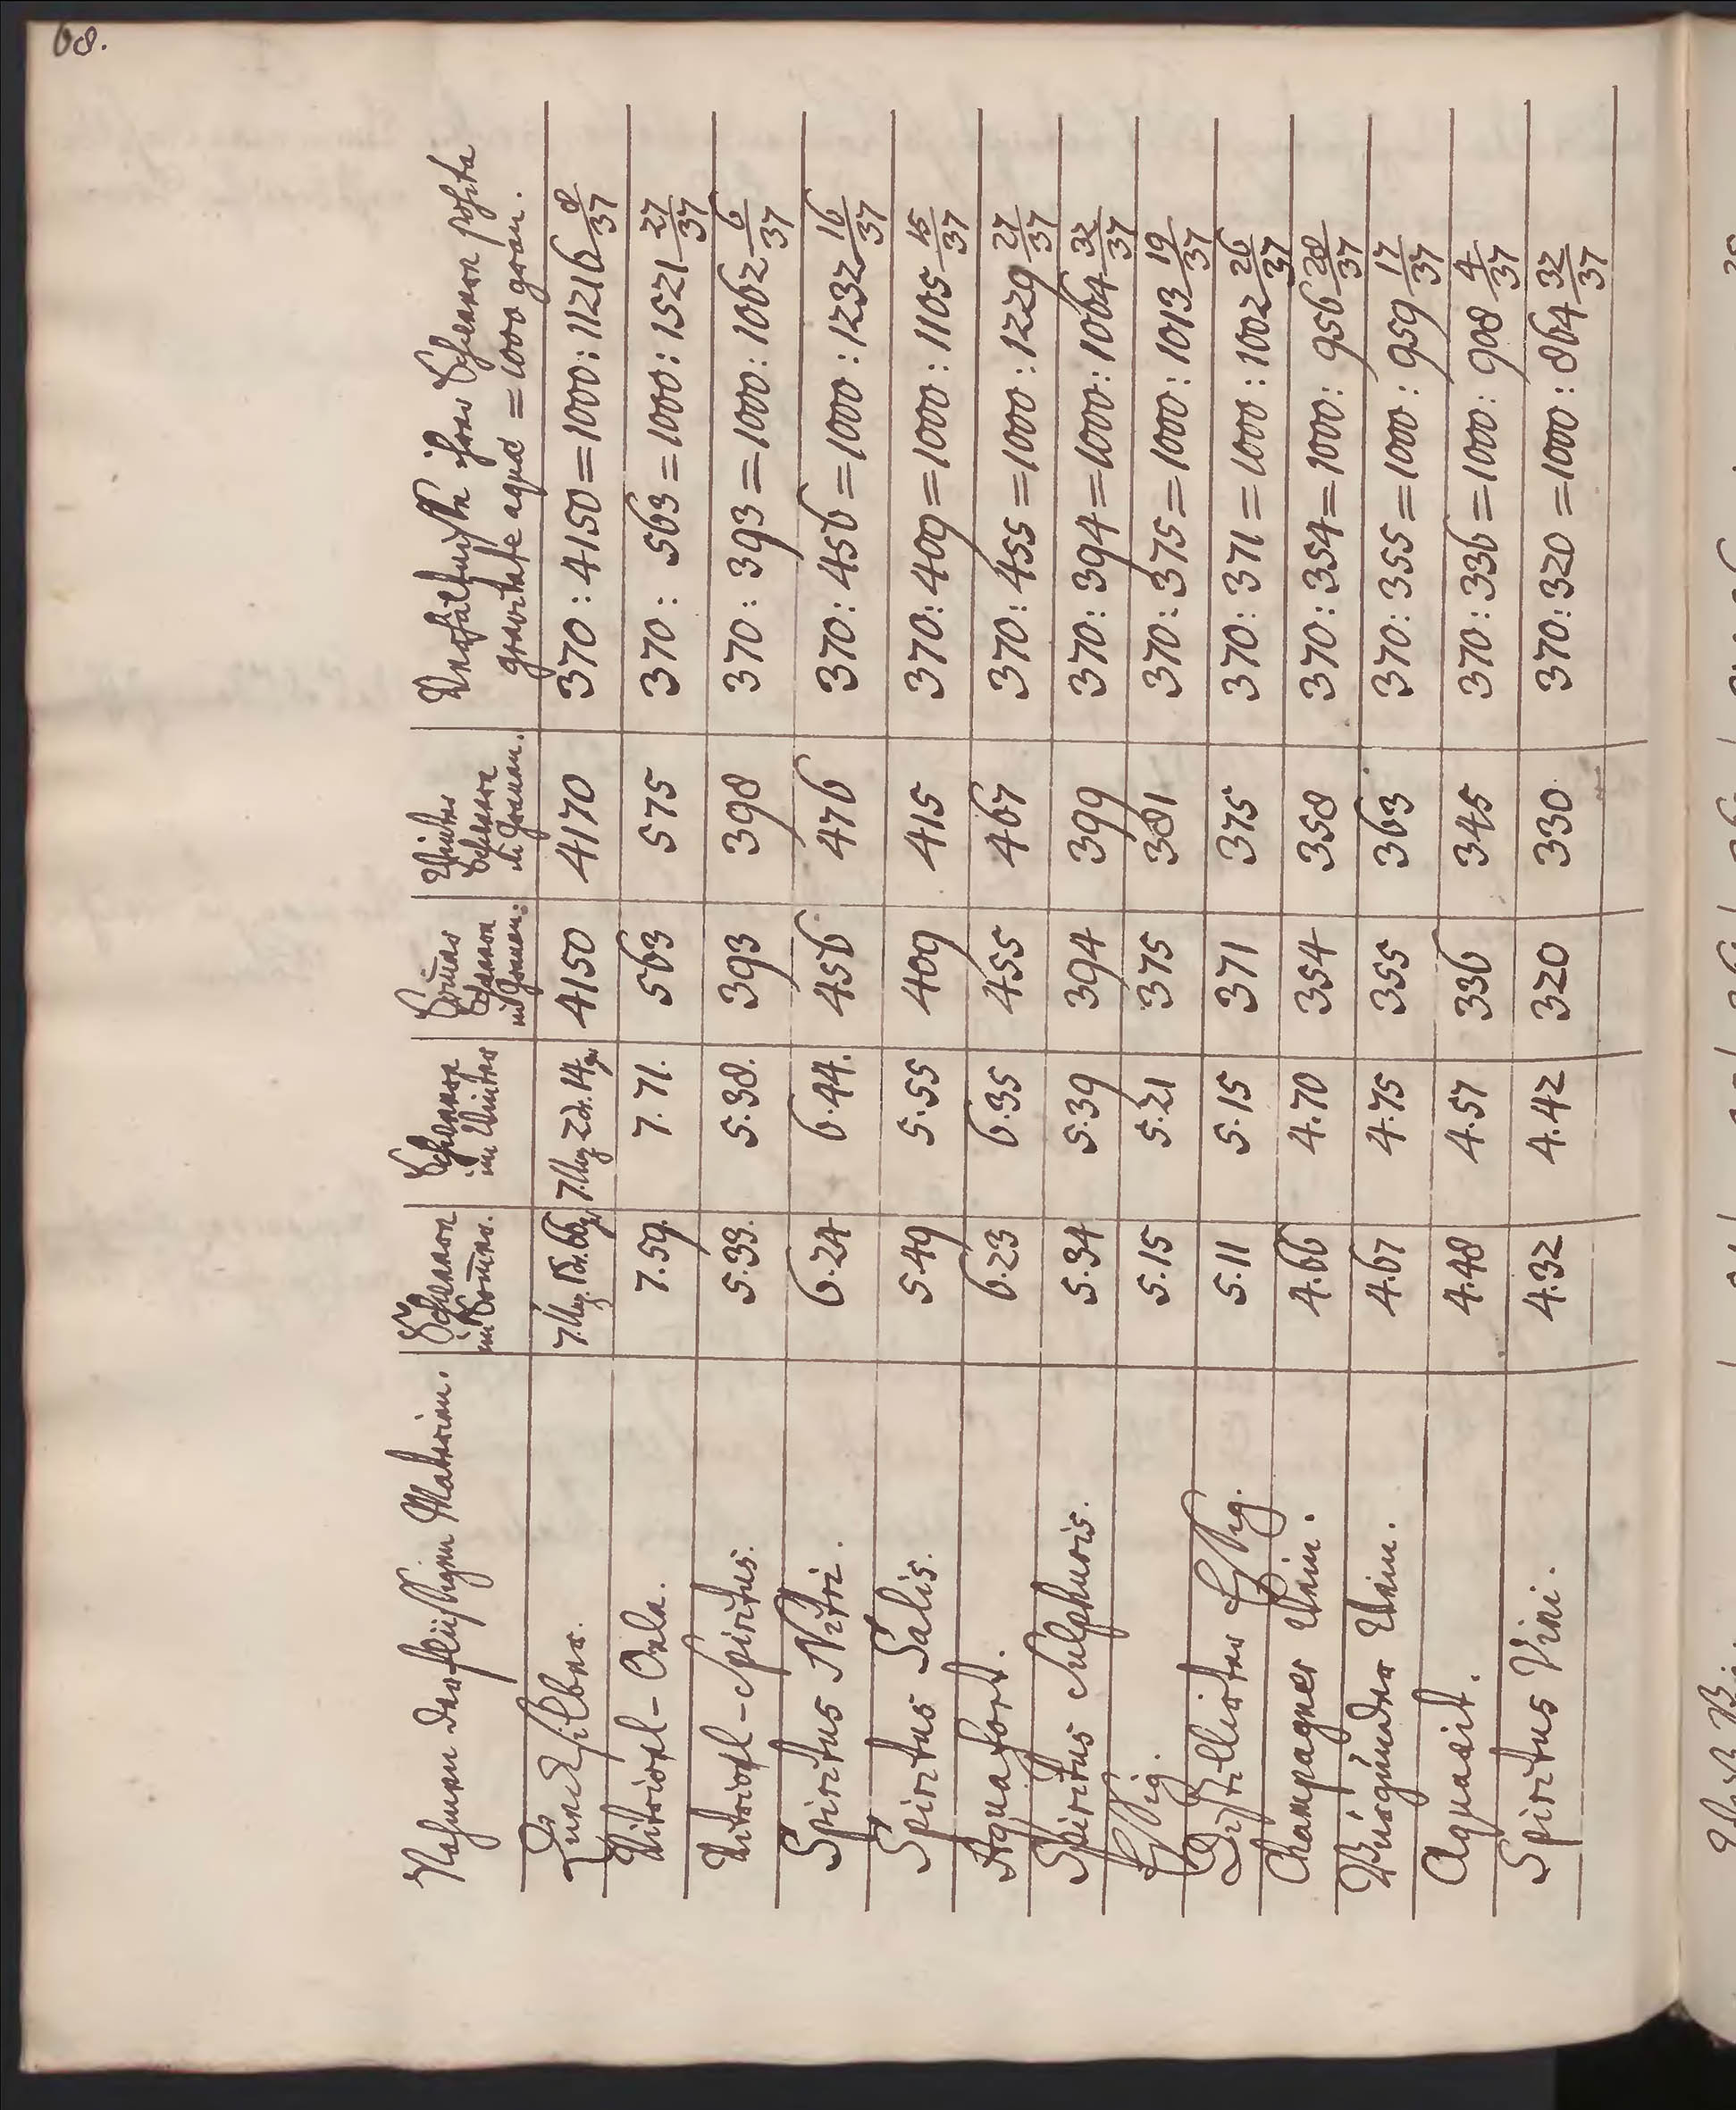 68.
Nahmen der flüssigen Materien. | Schwere im Som̄er. | Schwere im Winter | Som̄er Schwere in Granen. | Winter Schwere in Granen. | Verhältniße ihrer Schweren posita gravitate aquæ = 1000 gran.
Queckſilber. | 7.Unz. 1Dr. 66 gr | 7.Unz 2Dr. 14 gr | 4150 | 4170 | 370 : 4150 = 1000 : 11216 8/37
Vitriohl-Oele. | 7.59. | 7.71. | 563 | 575 | 370 : 563 = 1000 : 1521 27/37
Vitriohl-Spiritus. | 5.33. | 5.38. | 393 | 398 | 370 : 393 = 1000 : 1062 6/37
Spiritus Nitri. | 6.24 | 6.44. | 456 | 476 | 370 : 456 = 1000 : 1232 16/37
Spiritus Salis. | 5.49 | 5.55 | 409 | 415 | 370 : 409 = 1000 : 1105 15/37
Aqua fort. | 6.23 | 6.35 | 455 | 467 | 370 : 455 = 1000 : 1229 27/37
Spiritus Sulphuris. | 5.34 | 5.39 | 394 | 399 | 370 : 394 = 1000 : 1064 32/37
Eßig. | 5.15 | 5.21 | 375 | 381 | 370 : 375 = 1000 : 1013 19/37
Diſtillirter Eßig. | 5.11 | 5.15 | 371 | 375 | 370 : 371 = 1000 : 1002 26/37
Champagner Wein. | 4.66 | 4.70 | 354 | 358 | 370 : 354 = 1000 : 956 28/37
Burgunder Wein. | 4.67 | 4.75 | 355 | 363 | 370 : 355 = 1000 : 959 17/37
Aquavit. | 4.48 | 4.57 | 336 | 345 | 370 : 336 = 1000 : 908 4/37
Spiritus Vini. | 4.32 | 4.42 | 320 | 330 | 370 : 320 = 1000 : 864 32/37